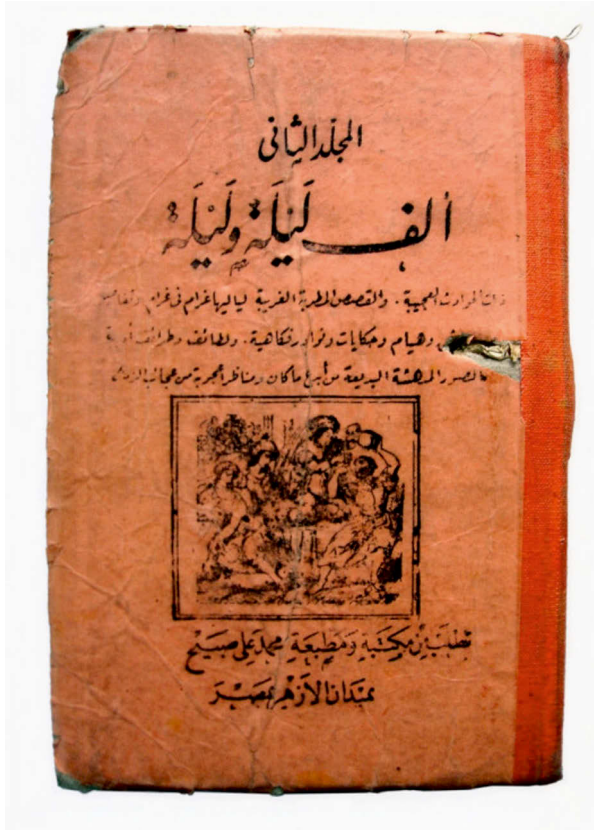 المجلد الثانى
ألف ليلة وليلة
ذات الحوادث العجيبة . والقصص المطربة الغريبة لياليها غرام فى غرام وتفاصيل
وهيام وحكايات ونوادر فكاهية . ولطائف وطرائف أدبية
بالصور المدهشة البديعة من أبدع ما كان ومناظر أعجوبة من عجائب الزمان
تطلب من مكتبة ومطبعة محمد على صبيح
بميدان الأزهر بمصر